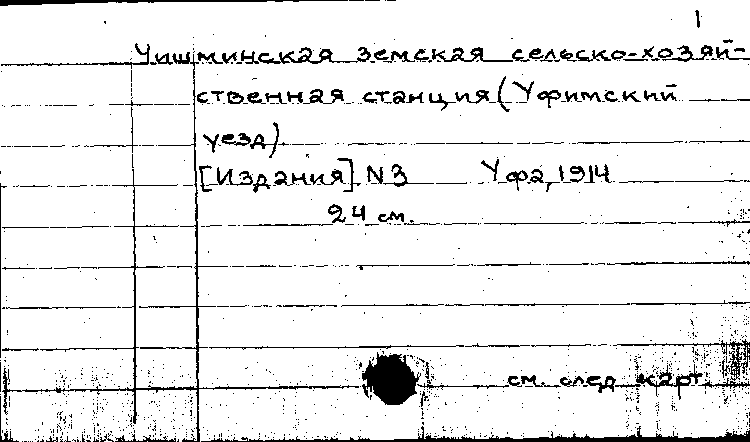 1
Чишминская земская сельско-хозяй-
ственная станция (Уфимский
уезд).
[Издания]. N3 Уфа, 1914
24 см.
см. след карт.